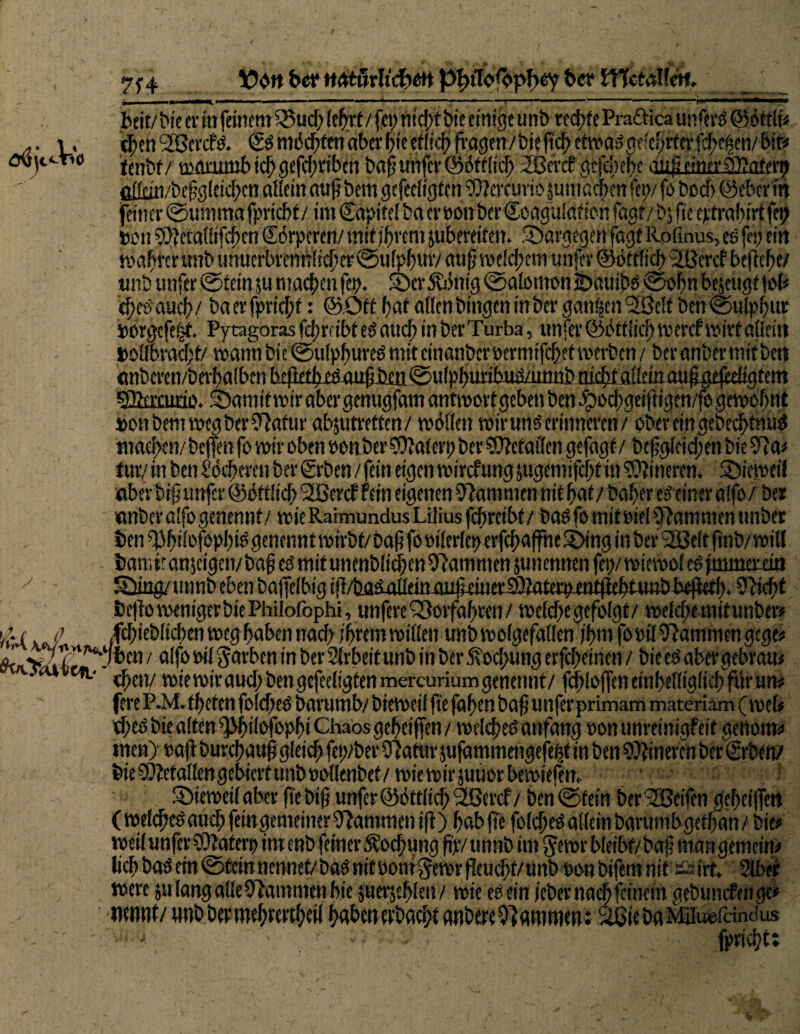 754 Von der natürlichen Philosophey der Metallen.
heit/die er in seinem Buch lehrt/sey nicht die einige und rechte Practica unsers Göttli⸗
chen Wercks. Es möchten aber hie etlich fragen/die sich etwas gelehrter schetzen/bit⸗
tendt/ warumb ich geschriben daß unser Göttlich Werck geschehe auß einer Matery
allein/deßgleichen allein auß dem geseeligten Mercurio zumachen sey/ so doch Geber in
seiner Summa spricht/ im Capitel da er von der Coagulation sagt/ dz sie extrahirt sey
von Metallischen Cörperen/ mit jhrem zubereiten. Dargegen sagt Rosinus, es sey ein
wahrer und unuerbrennlicher Sulphur/ auß welchem unser Göttlich Werck bestehe/
und unser Stein zu machen sey. Der König Salomon Dauids Sohn bezeugt sol⸗
ches auch/ da er spricht: GOtt hat allen dingen in der gantzen Welt den Sulphur
vorgesetzt. Pytagoras schreibt es auch in der Turba, unser Göttlich werck wirt allein
vollbracht/ wann die Sulphures mit einander vermischet werden/ der ander mit den
anderen/derhalben bestethes auß den Sulphuribus/unnd nicht allein auß geseeligtem
Mercurio. Damit wir aber genugsam antwort geben den Hochgeistigen/so gewohnt
von dem weg der Natur abzutretten/ wöllen wir uns erinneren/ oder ein gedechtnuß
machen/ dessen so wir oben von der Matery der Metallen gesagt/ deßgleichen die Na⸗
tur/ in den Löcheren der Erden/ sein eigen wirckung zugemischt in Mineren. Dieweil
aber diß unser Göttlich Werck kein eigenen Nammen nit hat/ daher es einer also/ der
ander also genennt/ wie Raimundus Lilius schreibt/ das so mit viel Nammen under
den Philosophis genennt wirdt/ daß so vilerley erschaffne Ding in der Welt sind/ will
damit anzeigen/ daß es mit unendlichen Nammen zunennen sey/ wiewol es jmmer ein
Ding/ unnd eben dasselbig ist/das allein auß einer Matery entsteht und besteth. Nicht
desto weniger die Philosophi, unsere Vorfahren/ welche gefolgt/ welche mit under⸗
schiedlichen weg haben nach jhrem willen und wolgefallen jhm so vil Nammen gege⸗
ben/ also vil Farben in der Arbeit und in der Kochung erscheinen/ die es aber gebrau⸗
chen/ wie wir auch den geseeligten mercurium genennt/ schlossen einhelliglich für un⸗
sere P.M. theten solches darumb/ dieweil sie sahen daß unser primam materiam (wel⸗
ches die alten Philosophi Chaos geheissen/ welches anfang von unreinigkeit genom⸗
men) vast durchauß gleich sey/der Natur zusammengesetzt in den Mineren der Erden/
die Metallen gebiert und vollendet/ wie wir zuuor bewiesen.
Dieweil aber sie diß unser Göttlich Werck/ den Stein der Weisen geheissen
(welches auch sein gemeiner Nammen ist) hab sie solches allein darumb gethan/ die⸗
weil unser Matery im end seiner Kochung fix/ unnd im Fewr bleibt/daß man gemein⸗
lich das ein Stein nennet/das nit vom Fewr fleucht/und von disem nit irt. Aber
were zu lang alle Nammen hie zuerzehlen/ wie es ein jeder nach seinem geduncken ge⸗
nennt/ und der mehrertheil haben erdacht andere Nammen: Wie da Miluescindus
spricht: